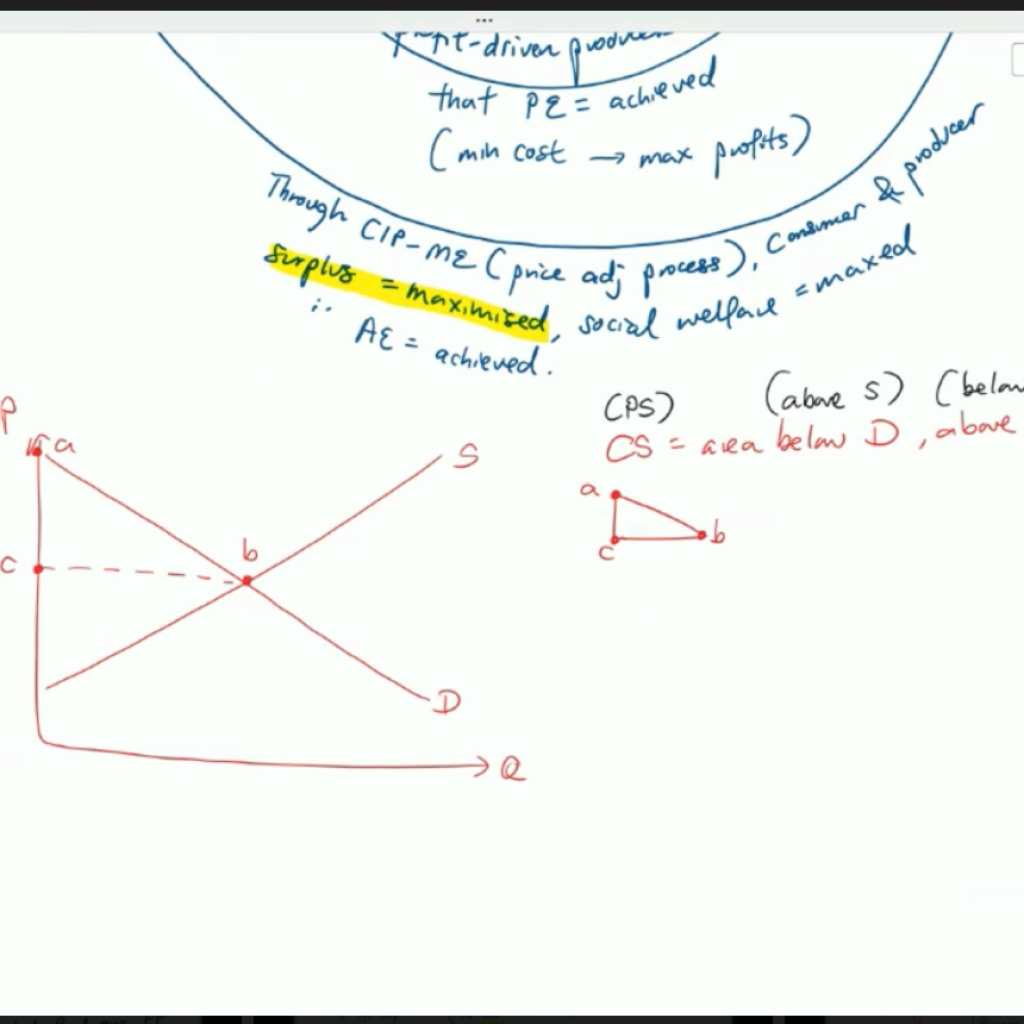 that PE = achieved
(min cost → max profits)
Through CIP-ME (price adj process), Consumer & producer
surplus = maximised, social welfare = maxed
∴ AE = achieved.
(PS) (above S) (below
CS = area below D, above
P
a
S
a
b
c
b
c
D
Q